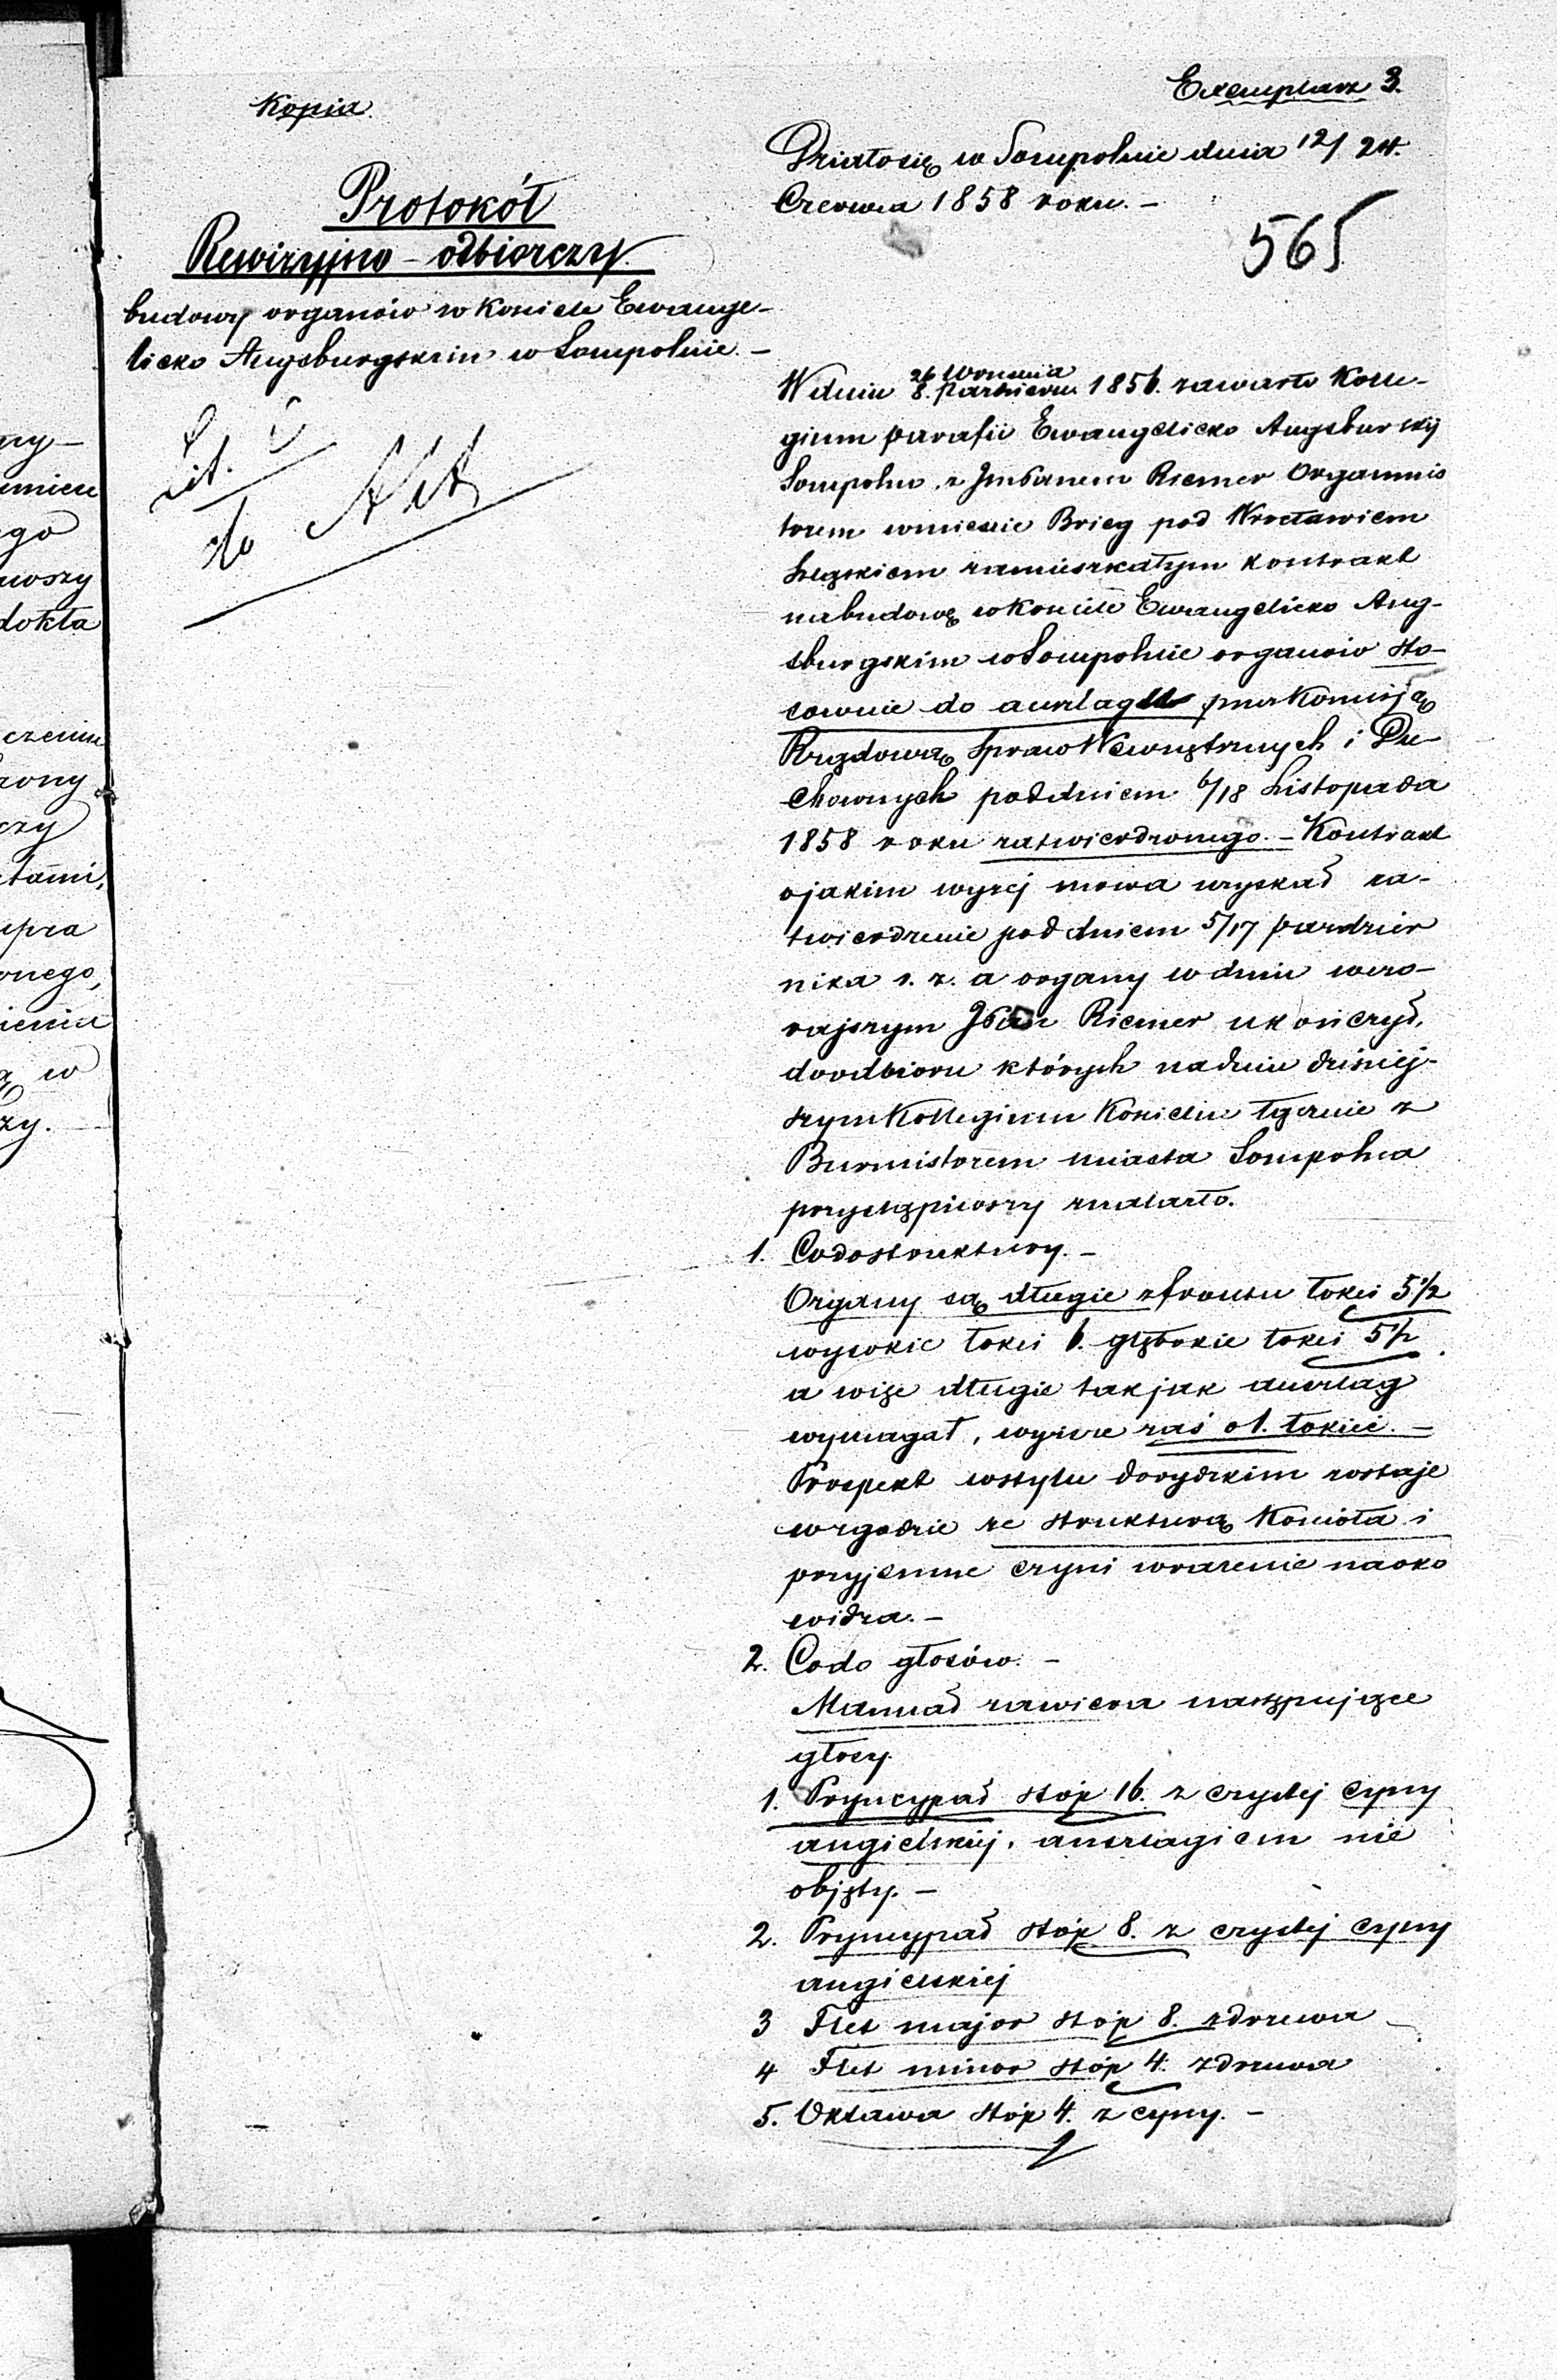 Kopia.
Protokół
Rewizyjno - odbiorczy
budowy organów w Kosciele Ewange-
licko Augsburgskim w Sompolnie. -
Lit. C
do Akt
Exemplarz 3.
Działosię w Sompolnie dnia 12/24.
Czerwca 1858 roku. -
565
W dniu 26 Wrzesnia / 8. Pazdziern. 1856. zawarło Kolle-
gium parafii Ewangelicko Augsburskij
Sompolno, z Janem Riemer Organmis
trzem wmiescie Brieg pod Wrocławiem
zamieszkałym kontrakt
nabudowę wKosciele Ewangelicko Aug-
sburgskim wSompolnie organów sto-
sownie do anszlagu przez Komisją
Rządową Spraw Wewnętrznych i Du-
chownych poddniem 6/18 Listopada
1858 roku zatwierdzonego. - Kontrakt
ojakim wyzej mowa uzyskał za-
twierdzenie pod dniem 5/17 pazdzier
nika r. z. a organy w dniu wczo-
rajszym Jan Riemer ukończył,
doodbioru których nadniu dzisiej-
szym Kollegium Koscielne łącznie z
Burmistrzem miasta Sompolna
przystąpiwszy znalazło.
1. Codostruktury. -
Organy są długie zfrontu łokci 5 1/2
wysokie łokci 6. głębokie łokci 5 1/2
a więc długie takjak anszlag
wymagał, wyzsze zaś o 1. łokieć. -
Prospekt wstylu doryckim zostaje
wzgodzie ze strukturą Koscioła i
przyjemne czyni wrazenie naoko
widza. -
2. Codo głosów. -
Manuał zawiera następujące
głosy.
1. Pryncypał stóp 16. z czystej cyny
angielskiej, anszlagiem nie
objęty. -
2. Pryncypał stóp 8. z czystej cyny
angielskiej
3 Flet major stóp 8. zdrzewa -
4 Flet minor stóp 4. zdrzewa
5. Oktawa stóp 4. z cyny. -
ny-
go
wszy
dokła
czeniu
rony
czy
tami,
pra
onego,
ienia
ą w
zy.